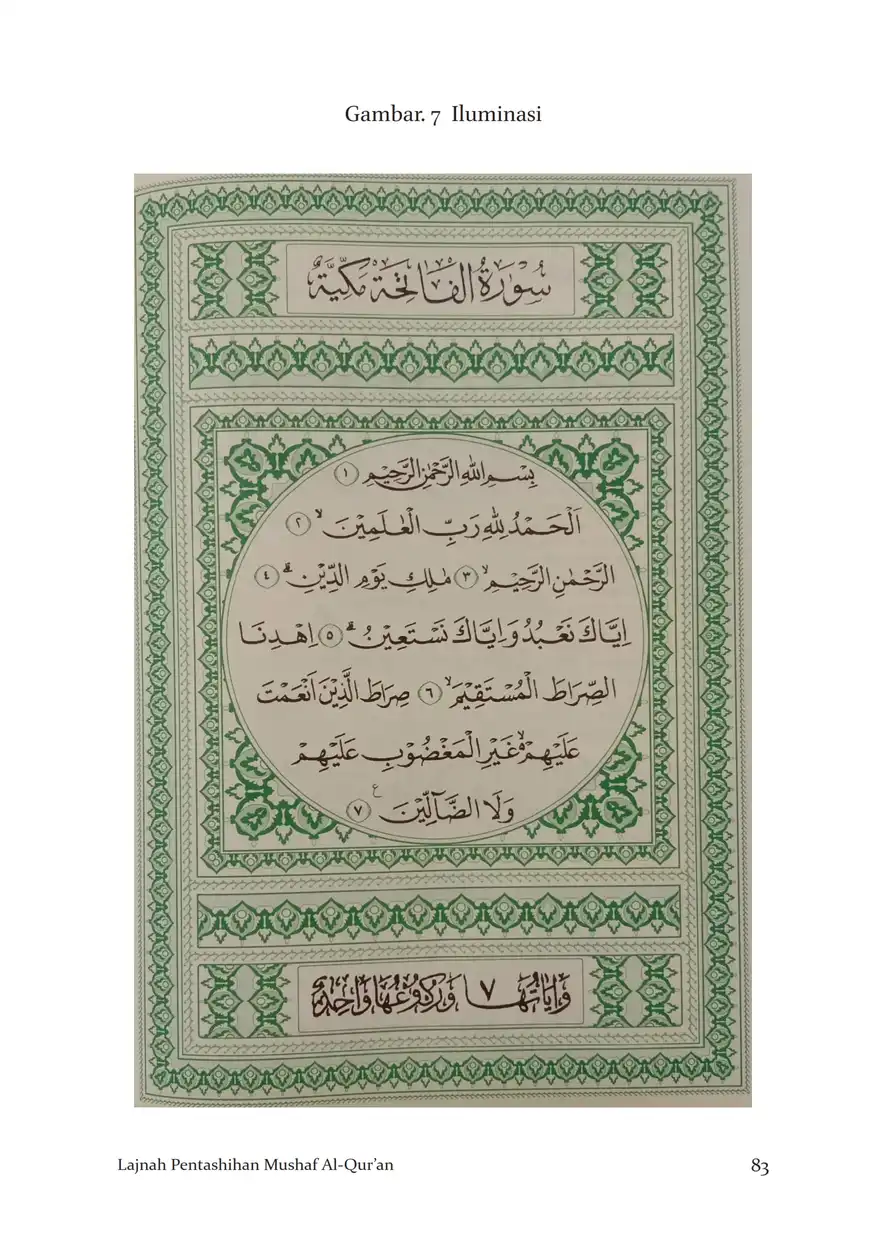 Gambar. 7 Iluminasi
سُوْرَةُ الْفَاتِحَةِ مَكِّيَّةٌ
بِسْمِ اللّٰهِ الرَّحْمٰنِ الرَّحِيْمِ ١
اَلْحَمْدُ لِلّٰهِ رَبِّ الْعٰلَمِيْنَۙ ٢
الرَّحْمٰنِ الرَّحِيْمِۙ ٣ مٰلِكِ يَوْمِ الدِّيْنِۗ ٤
اِيَّاكَ نَعْبُدُ وَاِيَّاكَ نَسْتَعِيْنُۗ ٥ اِهْدِنَا
الصِّرَاطَ الْمُسْتَقِيْمَۙ ٦ صِرَاطَ الَّذِيْنَ اَنْعَمْتَ
عَلَيْهِمْ ەۙ غَيْرِ الْمَغْضُوْبِ عَلَيْهِمْ
وَلَا الضَّاۤلِّيْنَ ع ٧
وَاٰيَاتُهَا ٧ وَرُكُوْعُهَا وَاحِدٌ
Lajnah Pentashihan Mushaf Al-Qur’an 83